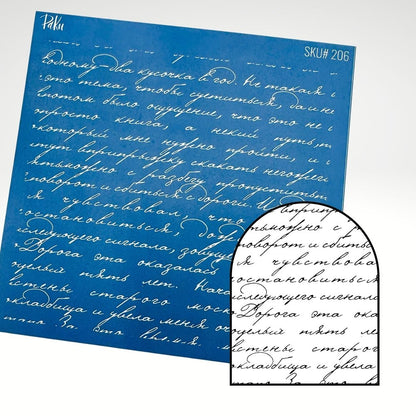 Paku
SKU# 206
одному два кусочка в год. Не такая
это тема, чтобы суетиться, да и не
было ощущение, что это не
просто книга, а некий путь,
который мне нужно пройти, и
вприпрыжку скакать негоже
с разбегу пропустить
поворот и сбиться с дороги. И
я чувствовал, что
остановиться
следующего сигнала, зовущ
Дорога эта оказалась
целый пять лет. Нача
стены старого мос
кладбища и увела меня оч
За это время
вприпр
можно с р
поворот и сбить
я чувствовал
остановиться
следующего сигнала
Дорога эта ока
целый пять ле
стены старог
кладбища и увела
За это вр